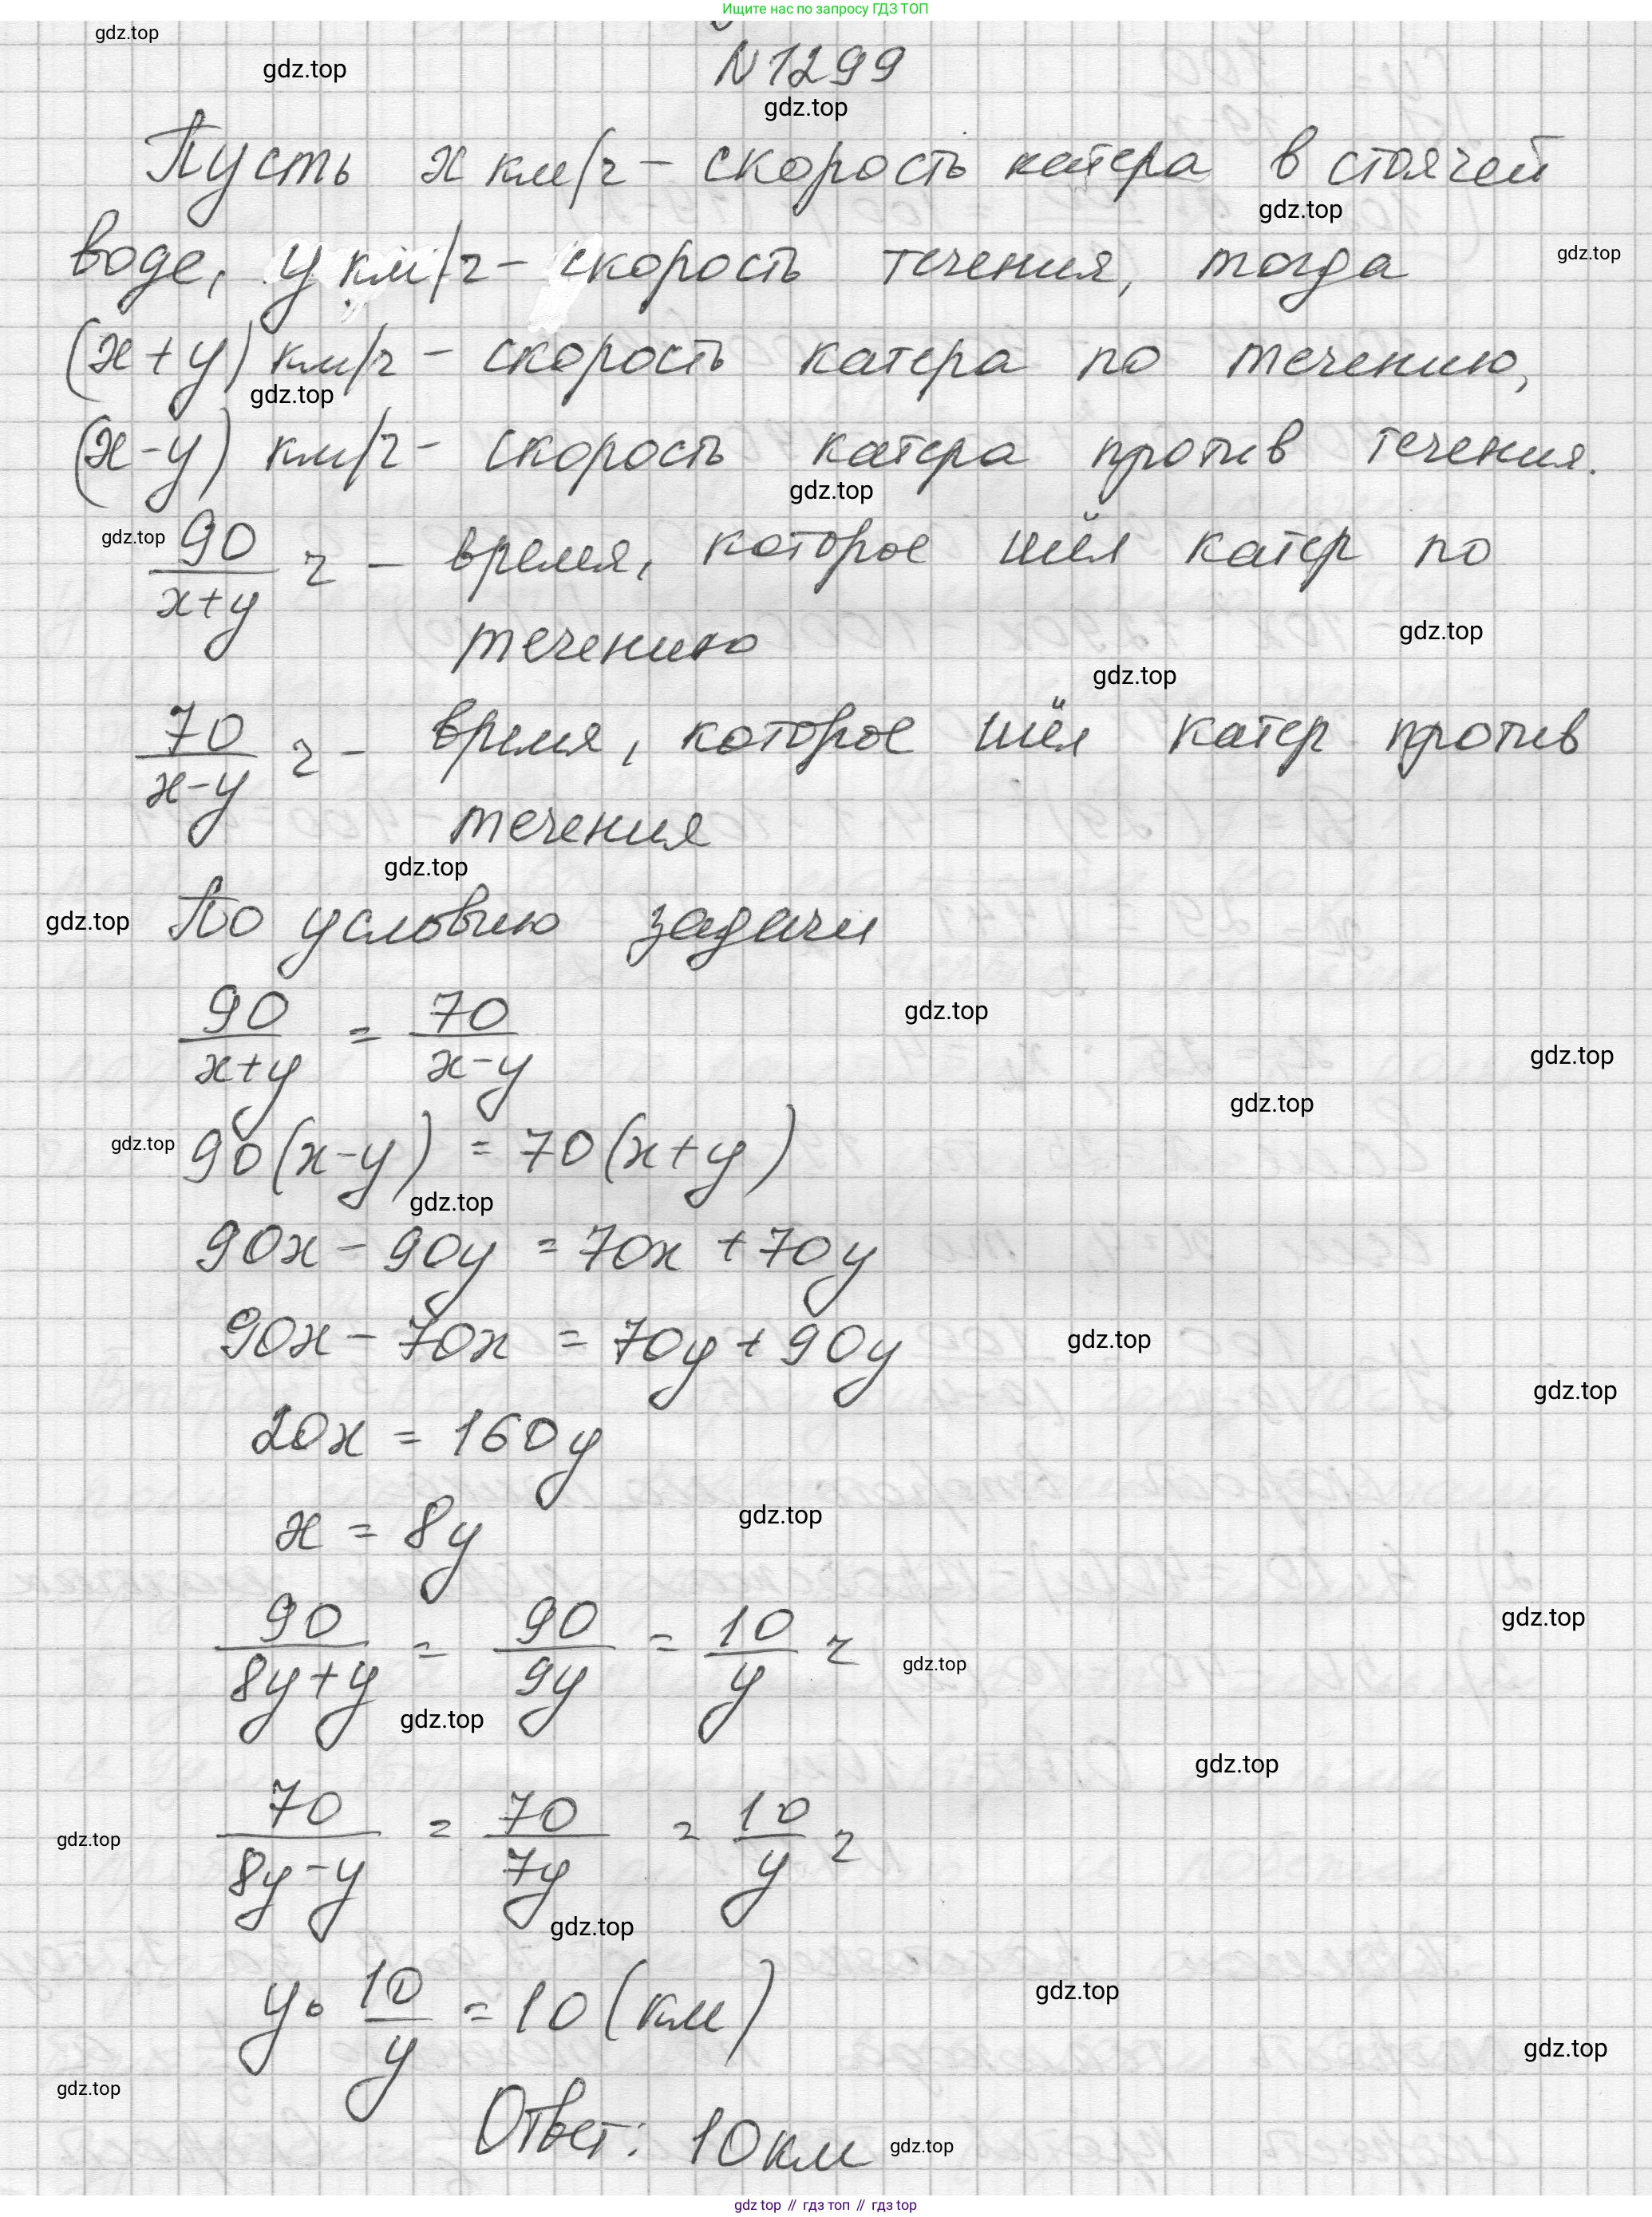 Ищите нас по запросу ГДЗ ТОП
gdz.top
gdz.top
N1299
gdz.top
Пусть x км/ч – скорость катера в стоячей
gdz.top
воде, y км/ч – скорость течения, тогда
gdz.top
(x+y) км/ч – скорость катера по течению,
gdz.top
(x-y) км/ч – скорость катера против течения.
gdz.top
gdz.top
90/(x+y) ч – время, которое шёл катер по
течению
gdz.top
gdz.top
70/(x-y) ч – время, которое шёл катер против
течения
gdz.top
gdz.top По условию задачи
90/(x+y) = 70/(x-y)
gdz.top
gdz.top
gdz.top
gdz.top 90(x-y) = 70(x+y)
gdz.top
90x - 90y = 70x + 70y
90x - 70x = 70y + 90y gdz.top
gdz.top
20x = 160y
x = 8y gdz.top
90/(8y+y) = 90/9y = 10/y ч
gdz.top
gdz.top
gdz.top
gdz.top
70/(8y-y) = 70/7y = 10/y ч
gdz.top
gdz.top
y · 10/y = 10 (км) gdz.top
gdz.top
gdz.top
Ответ: 10 км gdz.top
gdz top // гдз топ // гдз top